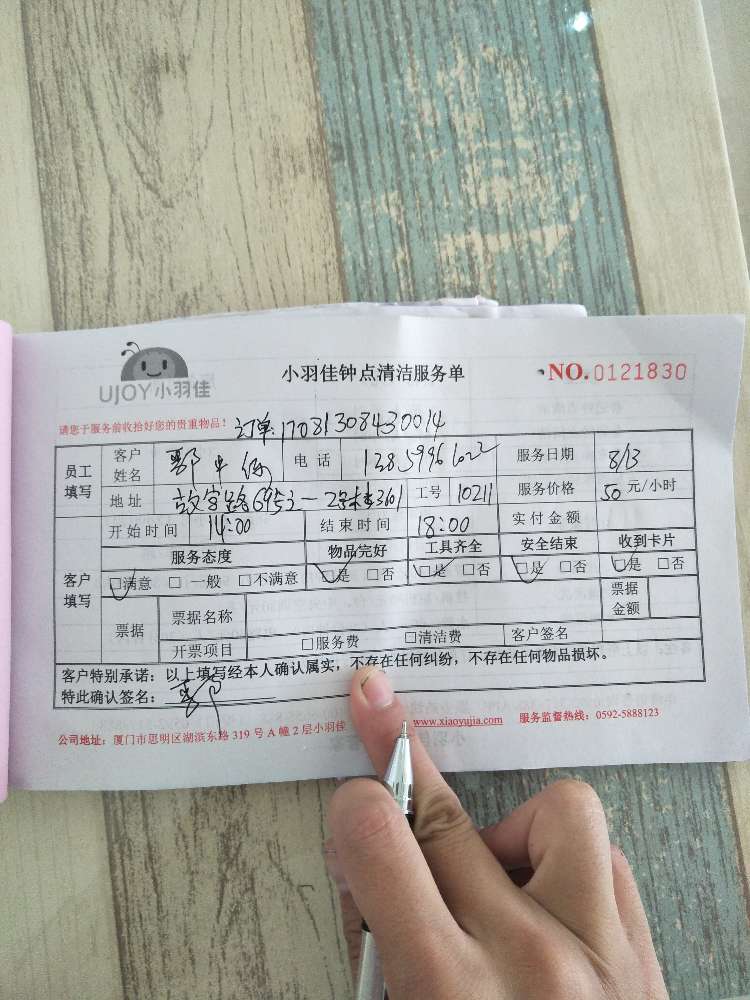 UJOY小羽佳
小羽佳钟点清洁服务单
NO.0121830
请您于服务前收拾好您的贵重物品！ 订单:17081308430014
员工填写 客户姓名 电话 服务日期 8/13
地址 工号 10211 服务价格 50 元/小时
开始时间 14:00 结束时间 18:00 实付金额
客户填写 服务态度 物品完好 工具齐全 安全结束 收到卡片
□满意 □一般 □不满意 □是 □否 □是 □否 □是 □否 □是 □否
票据 票据名称 票据金额
开票项目 □服务费 □清洁费 客户签名
客户特别承诺：以上填写经本人确认属实，不存在任何纠纷，不存在任何物品损坏。
特此确认签名：
公司地址：厦门市思明区湖滨东路 319 号 A 幢 2 层小羽佳 www.xiaoyujia.com 服务监督热线：0592-5888123